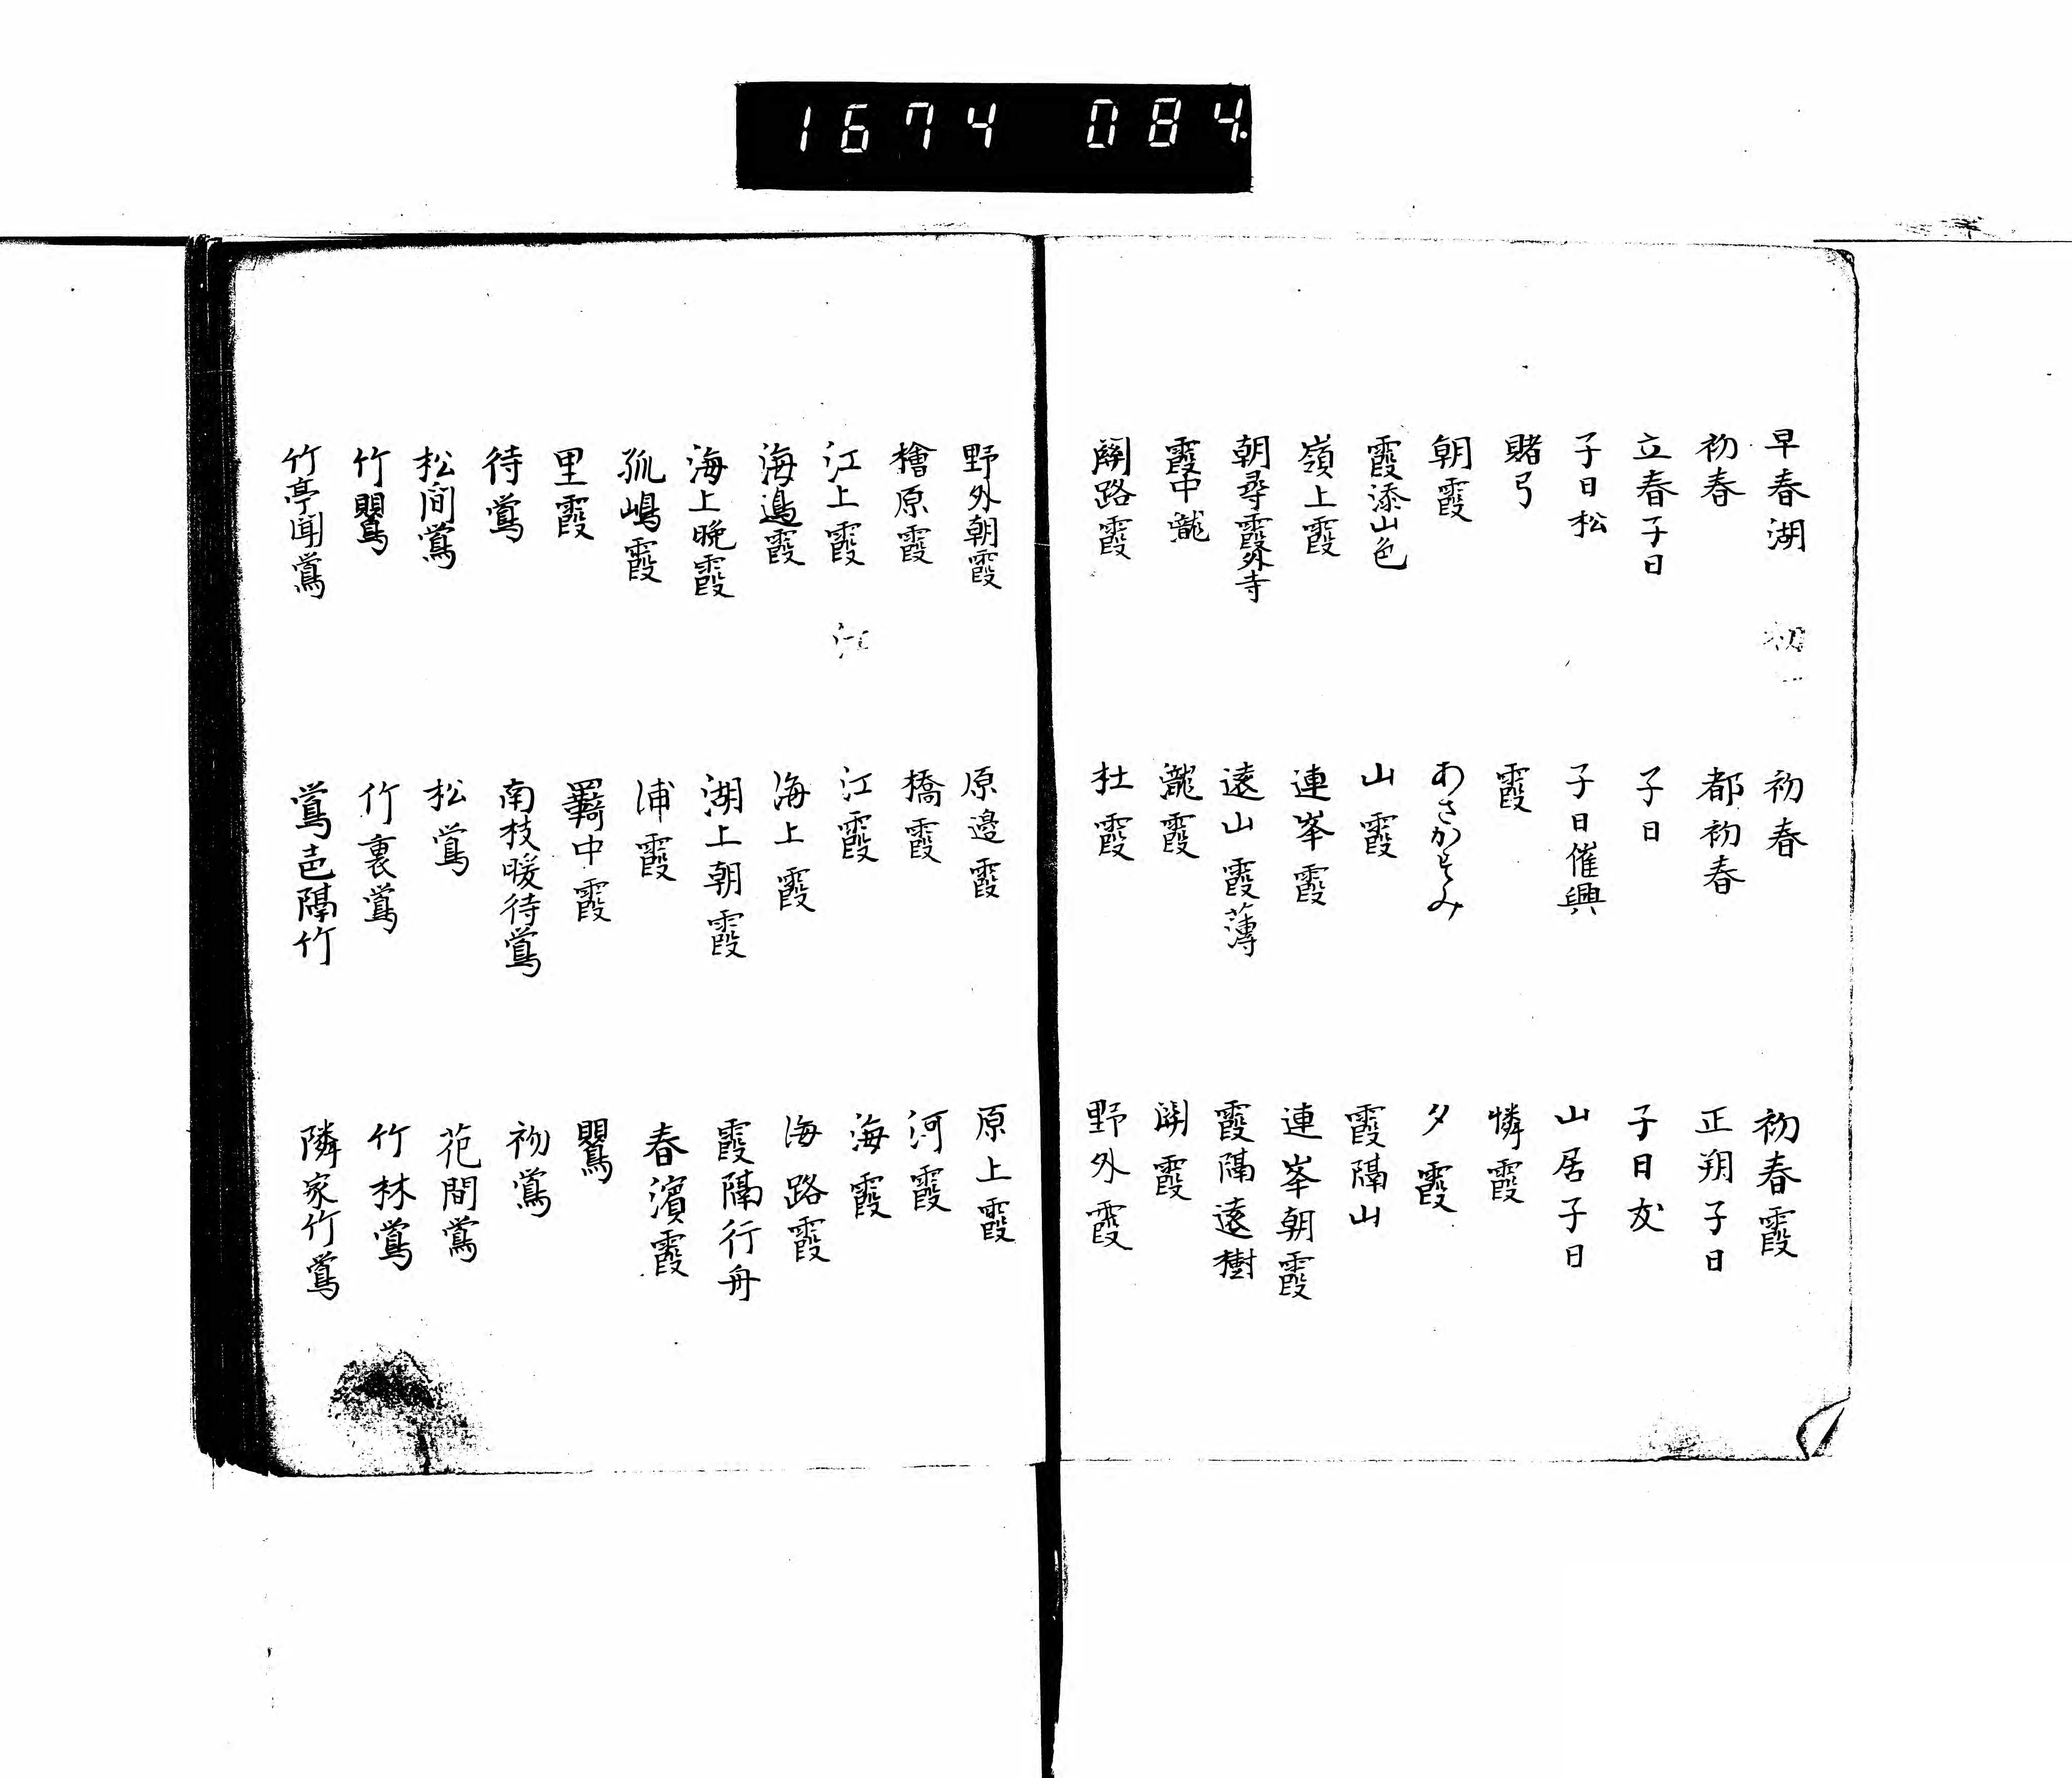 1674 084.
早春湖 初春 初春霞
初春 都初春 正朔子日
立春子日 子日 子日友
子日松 子日催興 山居子日
賭弓 霞 憐霞
朝霞 あさかすみ 夕霞
霞添山色 山霞 霞隔山
嶺上霞 連峯霞 連峯朝霞
朝尋霞外寺 遠山霞薄 霞隔遠樹
霞中瀧 瀧霞 関霞
関路霞 杜霞 野外霞
野外朝霞 原邊霞 原上霞
檜原霞 橋霞 河霞
江上霞 江霞 海霞
海邊霞 海上霞 海路霞
海上晩霞 湖上朝霞 霞隔行舟
孤嶋霞 浦霞 春濱霞
里霞 羇中霞 鸎
待鴬 南枝暖待鴬 初鴬
松間鴬 松鴬 花間鴬
竹鸎 竹裏鴬 竹林鴬
竹亭聞鴬 鴬邑隔竹 隣家竹鴬